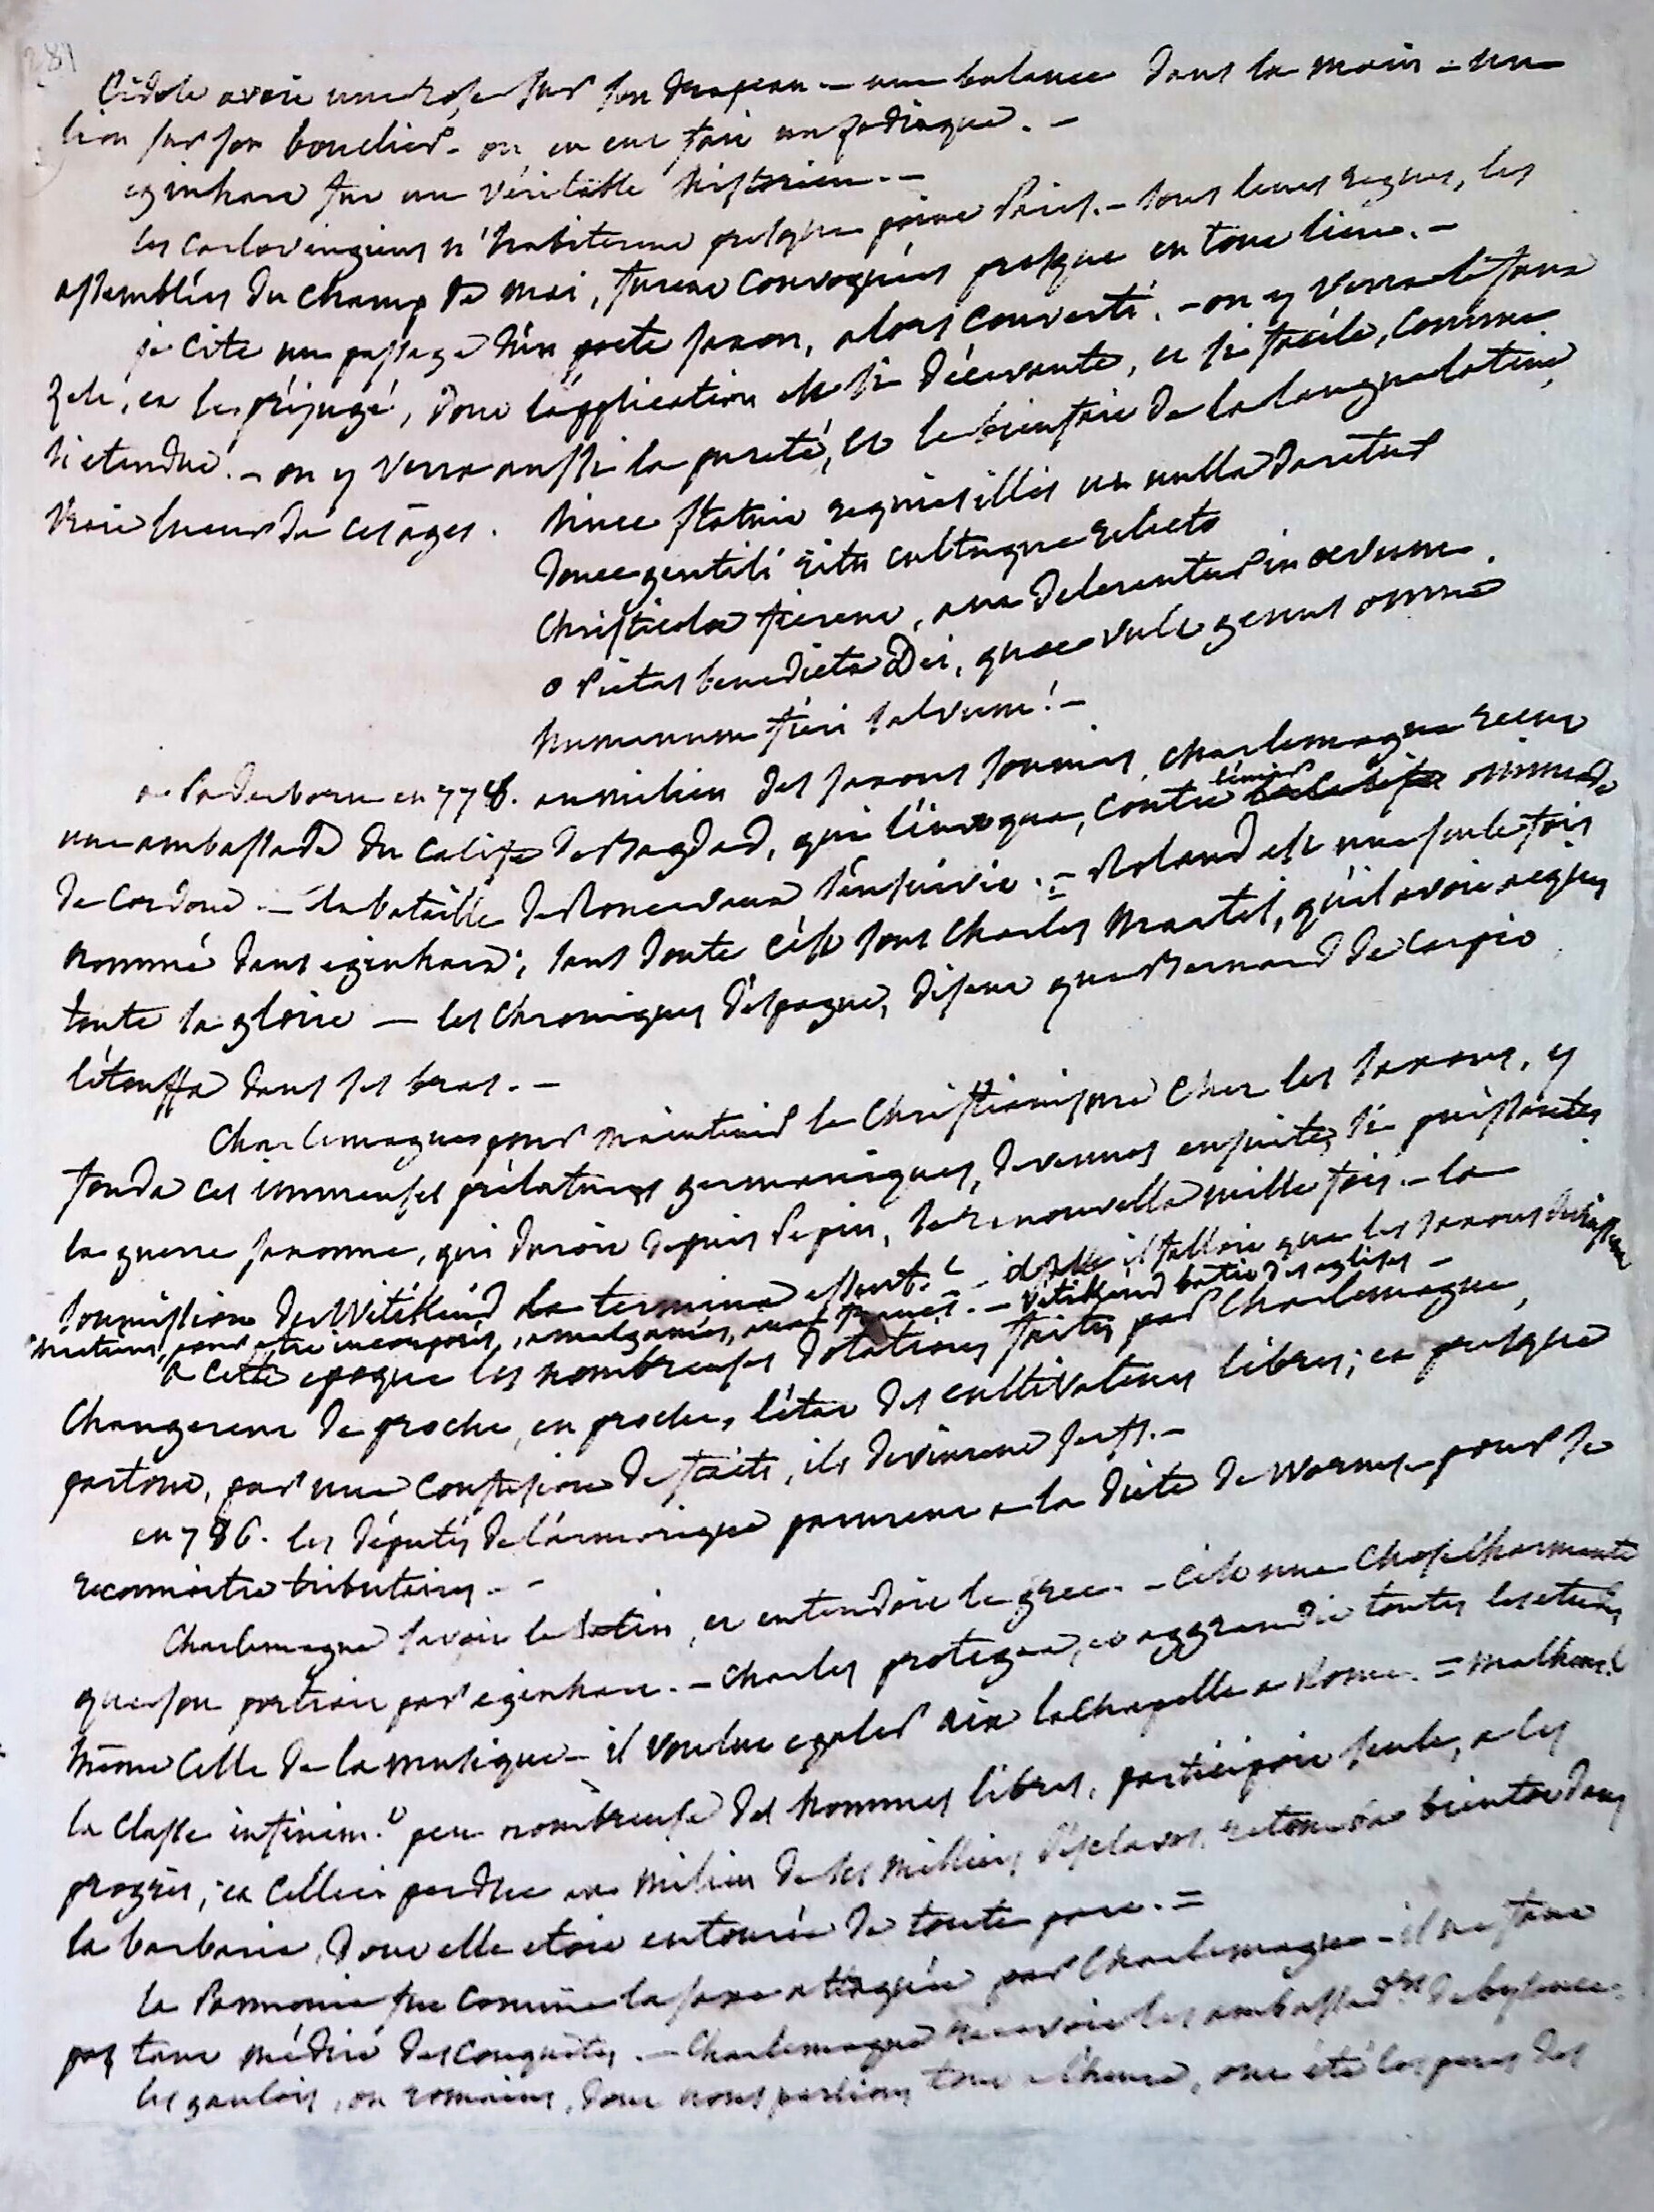 281
l'idole avoit une rose sur son drapeau – une balance dans la main – un
lion sur son bouclier – on en eut fait un zodiaque. –
eginhart fut un véritable historien. –
les carlovingiens n'habiterent presque point Paris. – sous leurs regnes, les
assemblées du champ de mai, furent convoquées presque en tout lieu. –
je cite un passage d'un poete saxon, alors converti. – on y verra le faux
zele, et le préjugé, dont l'application est si décevante, et si facile, comme
si etendue. – on y verra aussi la pureté, et le bienfait de la langue latine,
vraie lueur de ces âges. hinc statuit requies illis ut nulla daretur
donec gentili ritu cultuque relicto
Christicolae fierent, aut delerentur in aevum.
o Pietas benedicta Dei, quae vult genus omne
humanum fieri salvum! –
a Paderborn en 778. au milieu des saxons soumis, charlemagne reçut
une ambassade du calife de Bagdad, qui l'invoqua, contre l'émir ommiade
de Cordoue. – la bataille de Roncevaux s'ensuivit. – Roland est une seule fois
nommé dans eginhard; sans doute c'est sous Charles Martel, qu'il avoit acquis
toute sa gloire – les chroniques d'espagne, disent que Bernard de Carpio
l'étouffa dans ses bras. –
Charlemagne pour maintenir le christianisme chez les saxons, y
fonda ces immenses prélatures germaniques, devenues ensuite si puissantes
la guerre saxonne, qui duroit depuis Pepin, se renouvella mille fois. – la
soumission de Witikind la termina essent.t – il falloit que les saxons devinssent
chretiens, pour etre incorporés, amalgamés, aux francs. – Vitikind batit des eglises –
a cette epoque les nombreuses dotations faites par Charlemagne,
changerent de proche, en proche, l'état des cultivateurs libres; et presque
partout, par une confusion de faits, ils devinrent serfs. –
en 786. les députés de l'armorique parurent a la diete de Worms pour se
reconnoitre tributaires. –
Charlemagne savoit le latin, et entendoit le grec. – c'est une chose charmante
que son portrait par eginhart. – charles protegea, et aggrandit toutes les etudes
même celle de la musique – il voulut egaler aix la chapelle a Rome. = malheur.t
la classe infinim.t peu nombreuse des hommes libres, participoit seule, a ces
progrès; et celle ci perdue au milieu de ses milliers d'esclaves, retomba bientot dans
la barbarie, dont elle etoit entourée de toute part. =
la Pannonie fut comme la saxe attaquée par Charlemagne – il ne faut
pas tant médire des conquêtes. – Charlemagne recevoit les ambassad.rs de bysance.
les gaulois, ou romains, dont nous parlions tout a l'heure, ont été les peres des